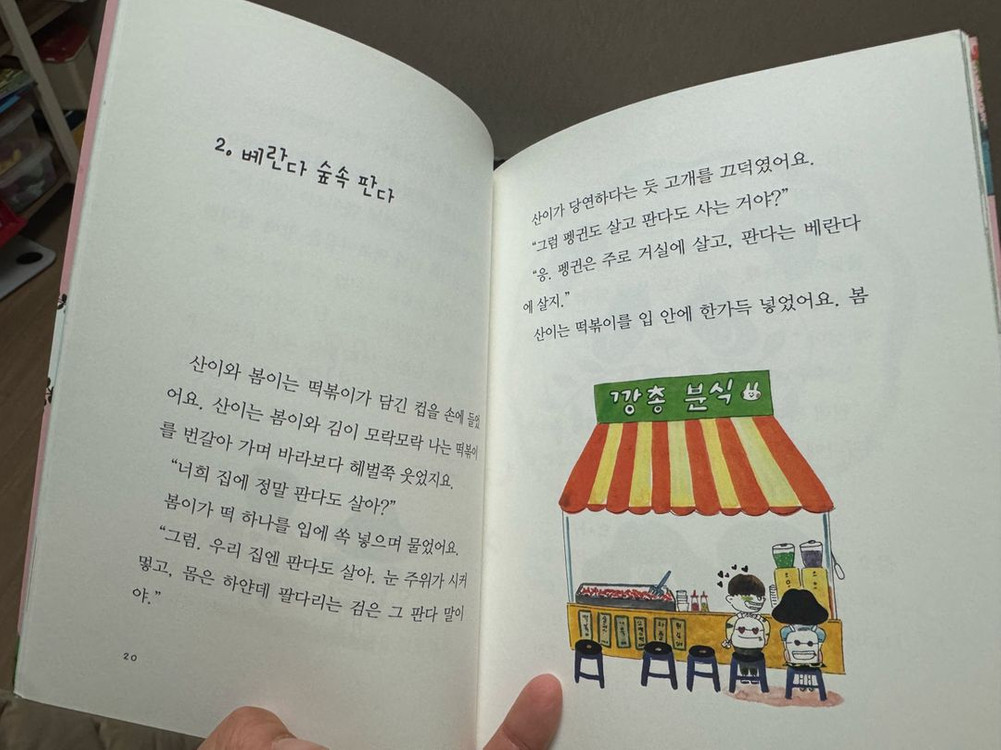 2. 베란다 숲속 판다
산이와 봄이는 떡볶이가 담긴 컵을 손에 들었
어요. 산이는 봄이와 김이 모락모락 나는 떡볶이
를 번갈아 가며 바라보다 헤벌쭉 웃었지요.
“너희 집에 정말 판다도 살아?”
봄이가 떡 하나를 입에 쏙 넣으며 물었어요.
“그럼. 우리 집엔 판다도 살아. 눈 주위가 시커
멓고, 몸은 하얀데 팔다리는 검은 그 판다 말이
야.”
20
산이가 당연하다는 듯 고개를 끄덕였어요.
“그럼 펭귄도 살고 판다도 사는 거야?”
“응. 펭귄은 주로 거실에 살고, 판다는 베란다
에 살지.”
산이는 떡볶이를 입 안에 한가득 넣었어요. 봄
깡총 분식